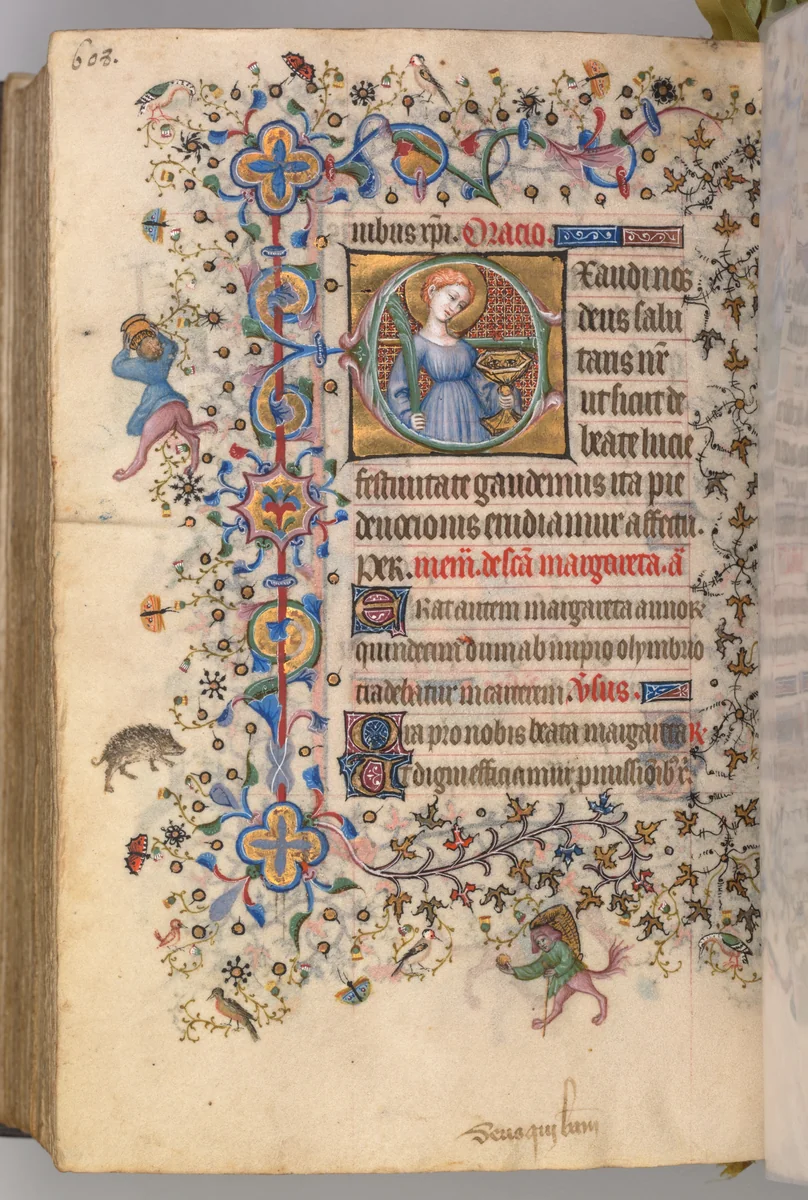 603.
nibus xpi. Oracio.
Exaudi nos
deus salu
taris nr̃
ut sicut de
beate lucie
festiuitate gaudemus ita pie
deuocionis erudiamur affectu.
Per. mem̃. de scã margareta. ã
Erat autem margareta annoꝝ
quindecim dum ab impio olymbrio
tradebatur in carcerem. v̾sus.
Ora pro nobis beata margareta R.
Ut digni efficiamur p̃missiõib̃ x̃.
Deus qui btam